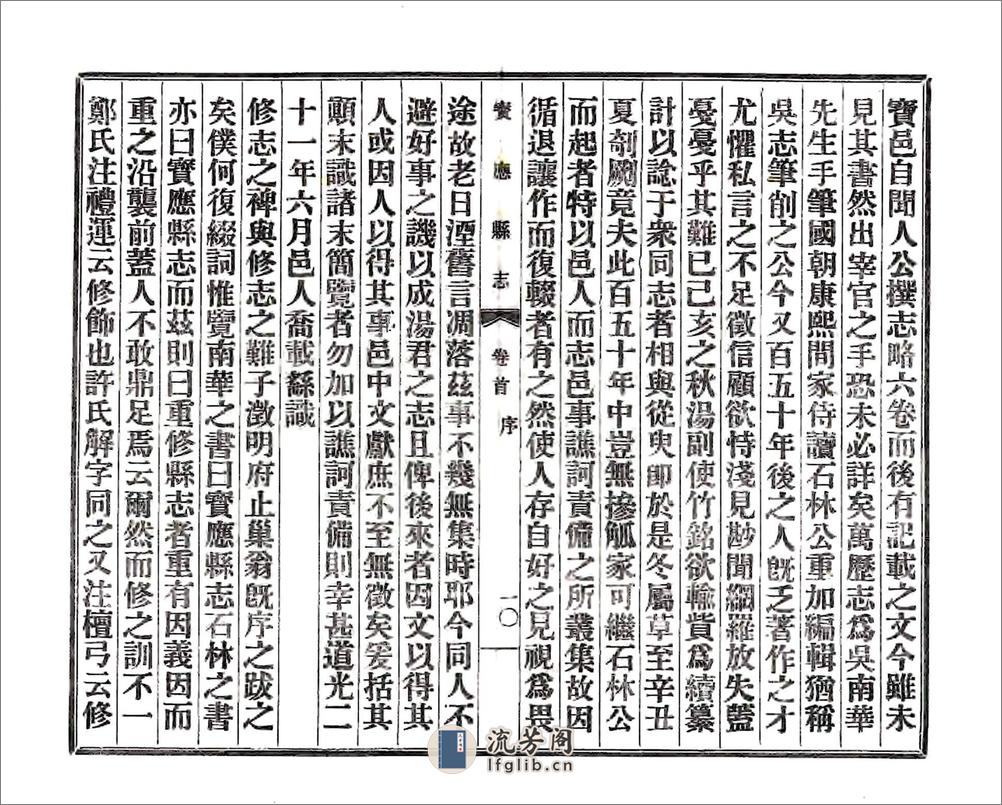 寶邑自聞人公撰志略六卷而後有記載之文今雖未
見其書然出宰官之手恐未必詳矣萬歷志爲吳南華
先生手筆國朝康熙間家侍讀石林公重加編輯猶稱
吳志筆削之公今又百五十年後之人旣乏著作之才
尤懼私言之不足徵信顧欲恃淺見尠聞網羅放失蓋
戞戞乎其難已己亥之秋湯副使竹銘欲輸貲爲續纂
計以諗于衆同志者相與從臾卽於是冬屬草至辛丑
夏剞劂竟夫此百五十年中豈無摻觚家可繼石林公
而起者特以邑人而志邑事譙訶責備之所叢集故因
循退讓作而復輟者有之然使人存自好之見視爲畏
寶應縣志 卷首 序 一〇
途故老日湮舊言凋落茲事不幾無集時耶今同人不
避好事之譏以成湯君之志且俾後來者因文以得其
人或因人以得其事邑中文獻庶不至無徵矣爰括其
顚末識諸末簡覽者勿加以譙訶責備則幸甚道光二
十一年六月邑人喬載繇識
修志之禆與修志之難子澂明府止巢翁旣序之跋之
矣僕何復綴詞惟覽南華之書曰寶應縣志石林之書
亦曰寶應縣志而茲則曰重修縣志者重有因義因而
重之沿襲前蓋人不敢鼎足焉云爾然而修之訓不一
鄭氏注禮運云修飾也許氏解字同之又注檀弓云修
流芳阁
lfglib.cn